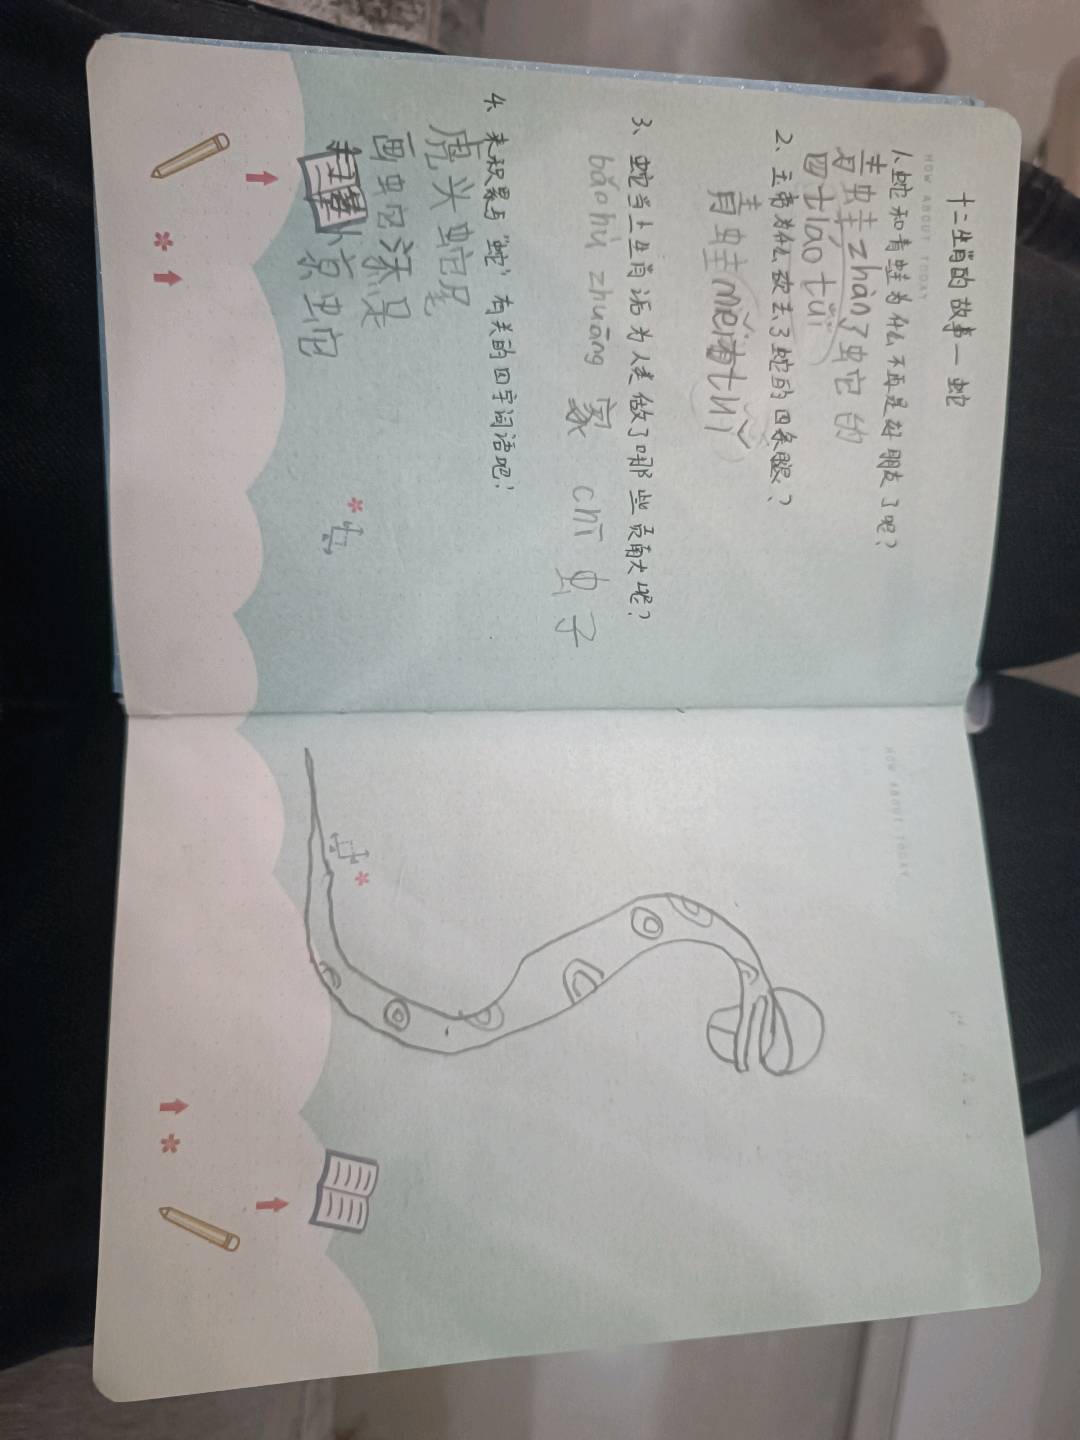 HOW ABOUT TODAY
十二生肖的故事一蛇
1、蛇和青蛙为什么不再是好朋友了呢？
青蛙zhàn了蛇的
四tiáo tuǐ
2、玉帝为什么砍去了蛇的四条腿？
青蛙měi有tuǐ
3、蛇当上生肖后为人类做了哪些贡献呢？
bǎo hù zhuāng 家 chī 虫子
4、来积累与“蛇”有关的四字词语吧！
虎头蛇尾
画蛇添足
惊蛇
HOW ABOUT TODAY